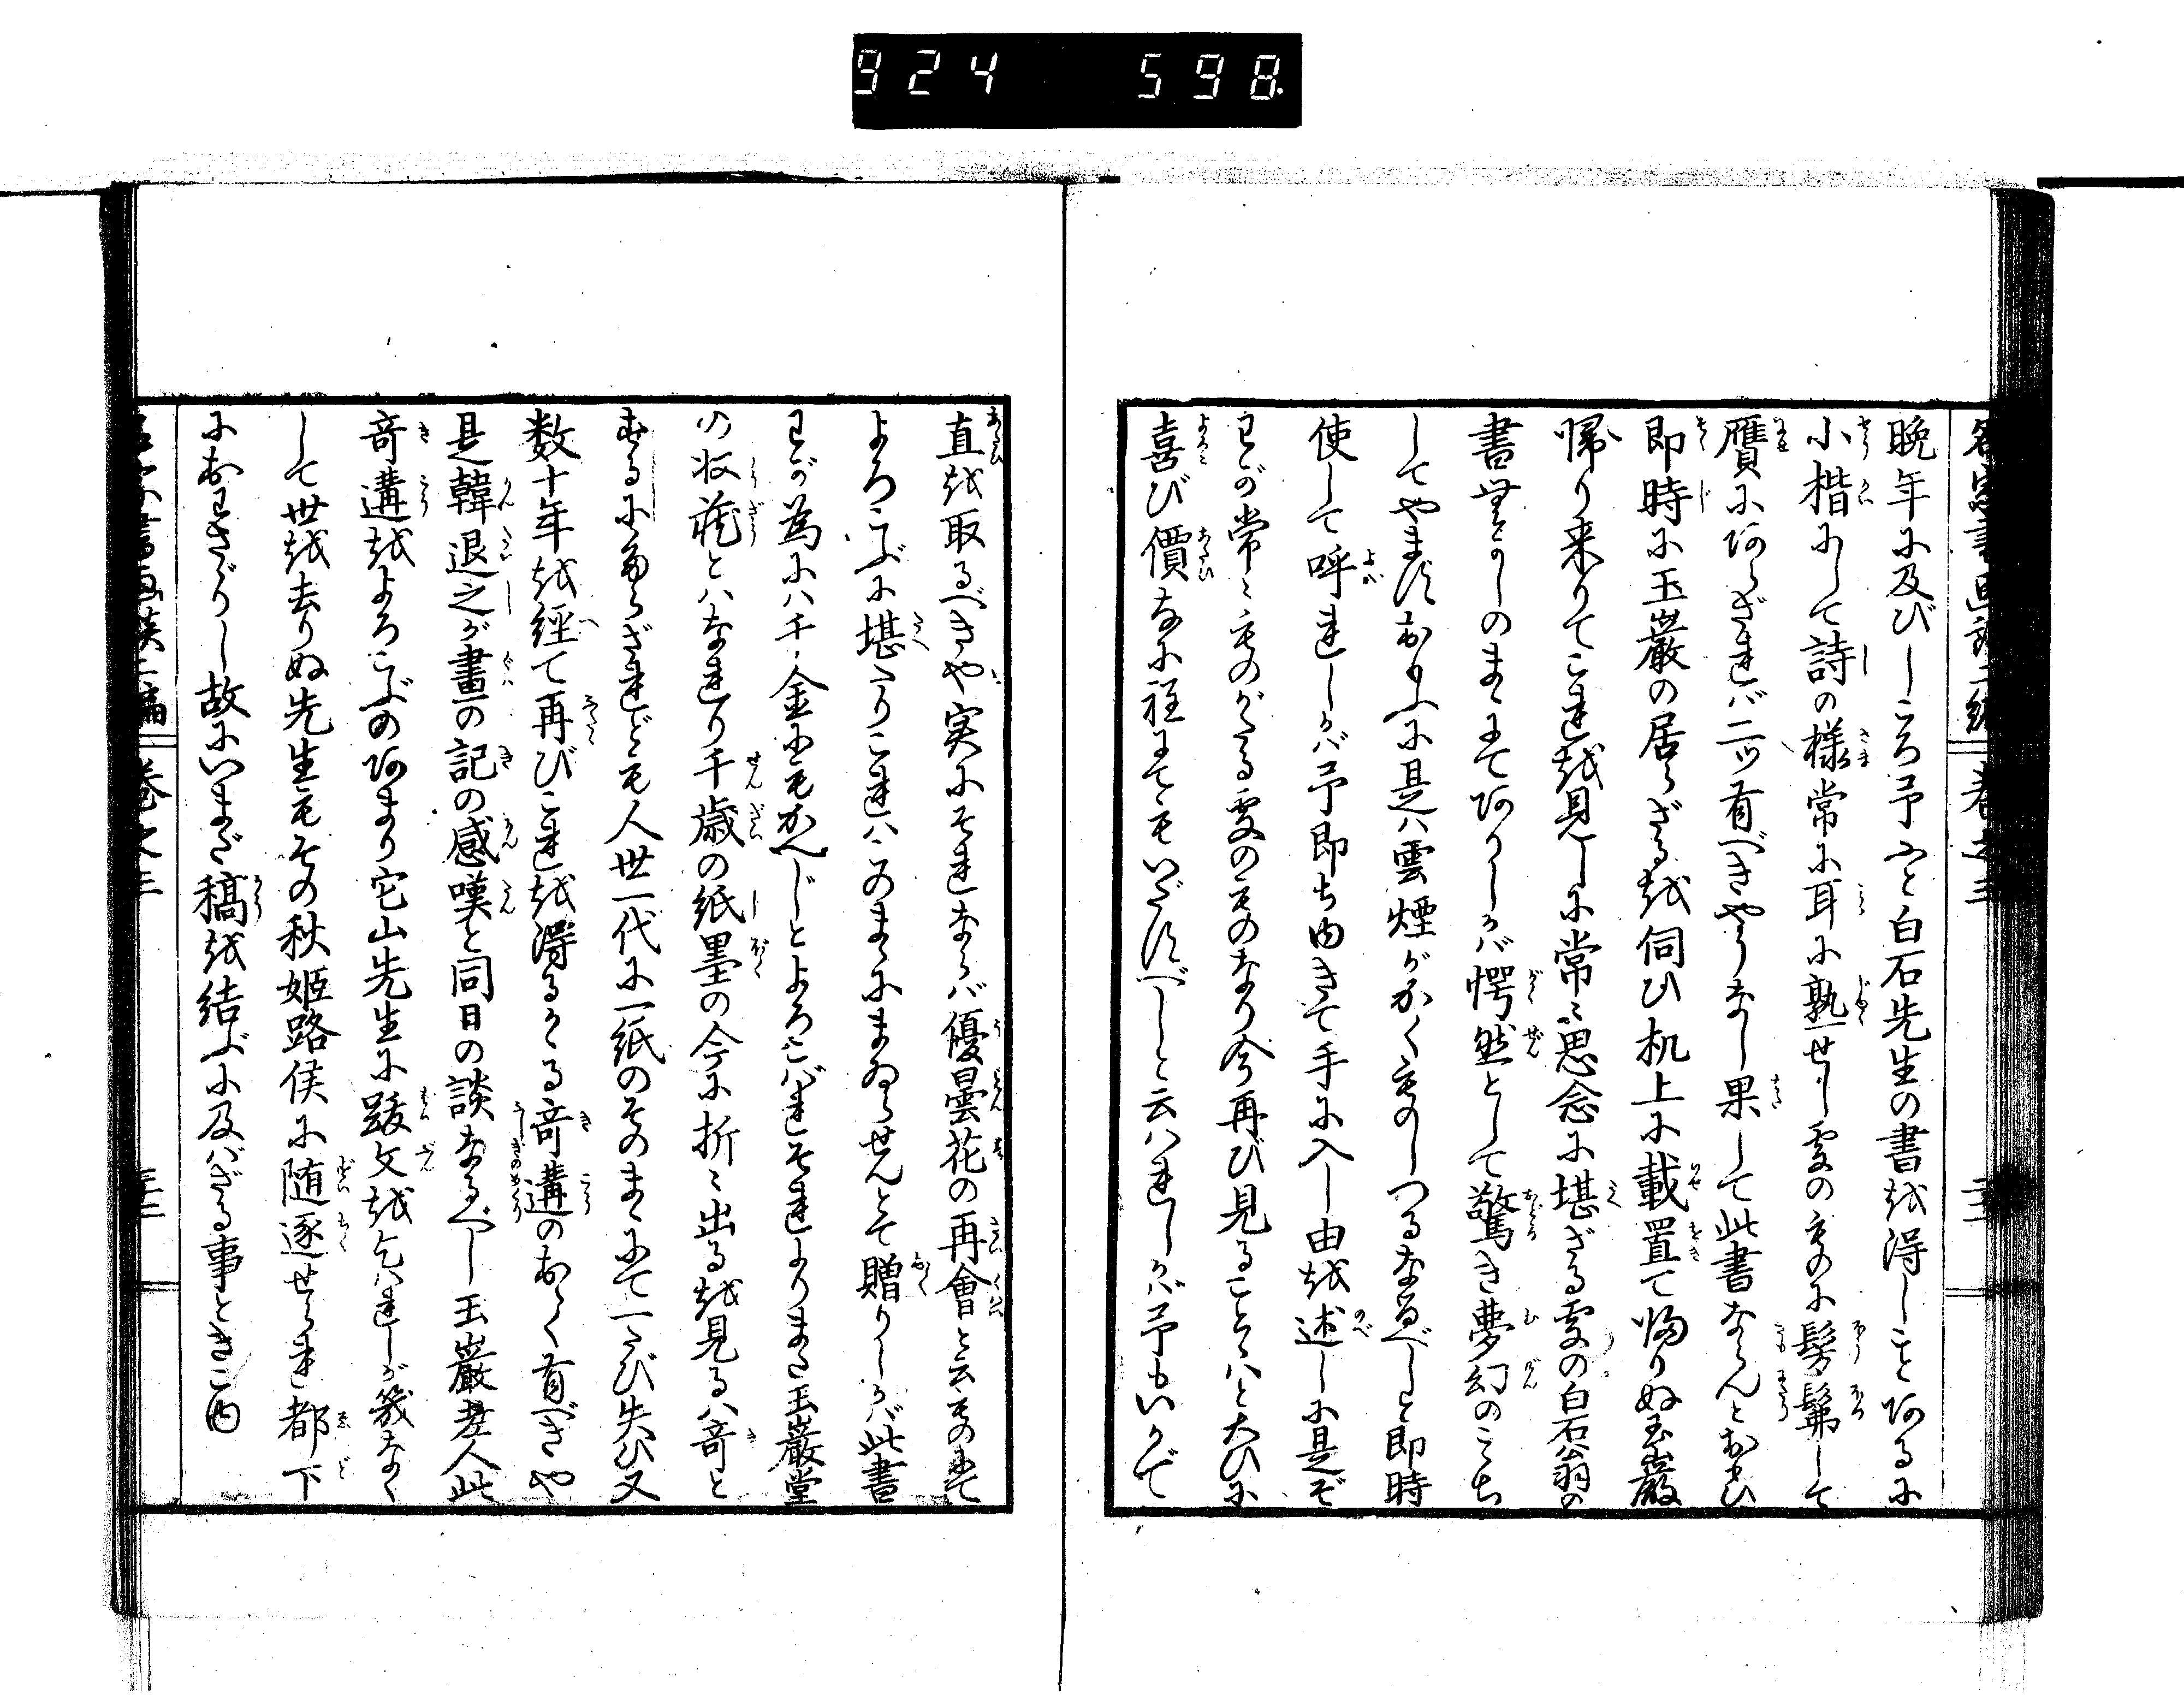 924 598
名家書画談二編 巻之三
晩年に及びしころ予ふと白石先生の書を得しことあるに
小楷にして詩の様常に耳に熟せし処のものに髣髴して
贋にあらざれバ二ツ有べきやうなし果して此書ならんとおもひ
即時に玉巌の居らざるを伺ひ机上に載置て帰りぬ玉巌
帰り来りてこれを見しに常〻思念に堪ざる処の白石翁の
書昔しのまゝにてありしかバ愕然として驚き夢幻のこゝち
してやまずおもふに是ハ雲煙がかくものしつるなるべしと即時
使して呼れしかバ予即ち由きて手に入し由を述しに是ぞ
わが常〻ものがたる処のものなり今再び見ることハと大ひに
喜び價なに程にてもいだすべしと云ハれしかバ予もいかで
直を取るべきや実にそれならバ優曇花の再會と云ものにて
よろこぶに堪たりこれハこのまゝにまゐらせんとて贈りしかバ此書
わが為にハ千金にもかへじとよろこばれそれよりまた玉巌堂
の收蔵とハなれり千歳の紙墨の今に折〻出るを見るハ奇と
するに足らざれども人世一代に一紙のそのまゝにて一たび失ひ又
数十年を経て再びこれを得るかゝる奇遘のおゝく有べきや
是韓退之が畫の記の感嘆と同日の談なるべし玉巌老人此
奇遘をよろこぶのあまり它山先生に跋文を乞ハれしが幾なく
して世を去りぬ先生もその秋姫路侯に随逐せられ都下
におわさざりし故にいまだ稿を結ぶに及バざる事ときこ由
名家書画談二編 巻之三